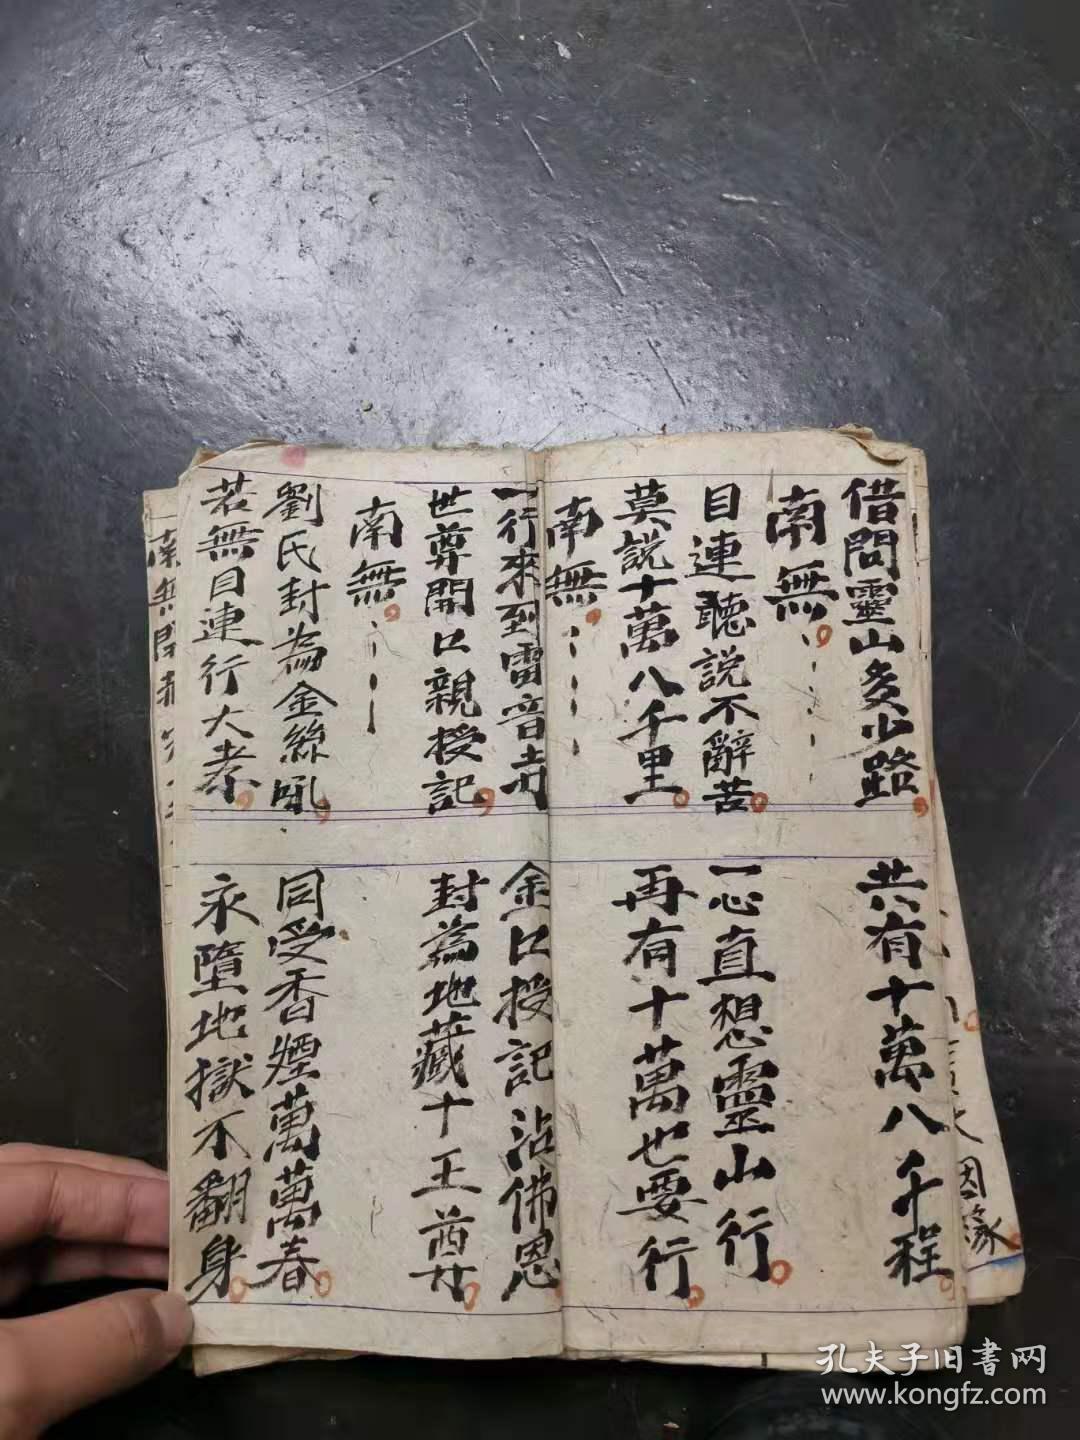 借問靈山多少路 共有十萬八千程
南無
目連聽説不辭苦 一心直想靈山行
莫説十萬八千里 再有十萬也要行
南無
一行來到雷音寺 金口授記沾佛恩
世尊開口親授記 封為地藏十王尊
南無
劉氏封為金絲吼 同受香煙萬萬春
若無目連行大孝 永墮地獄不翻身
南無
因緣
孔夫子旧書网
www.kongfz.com